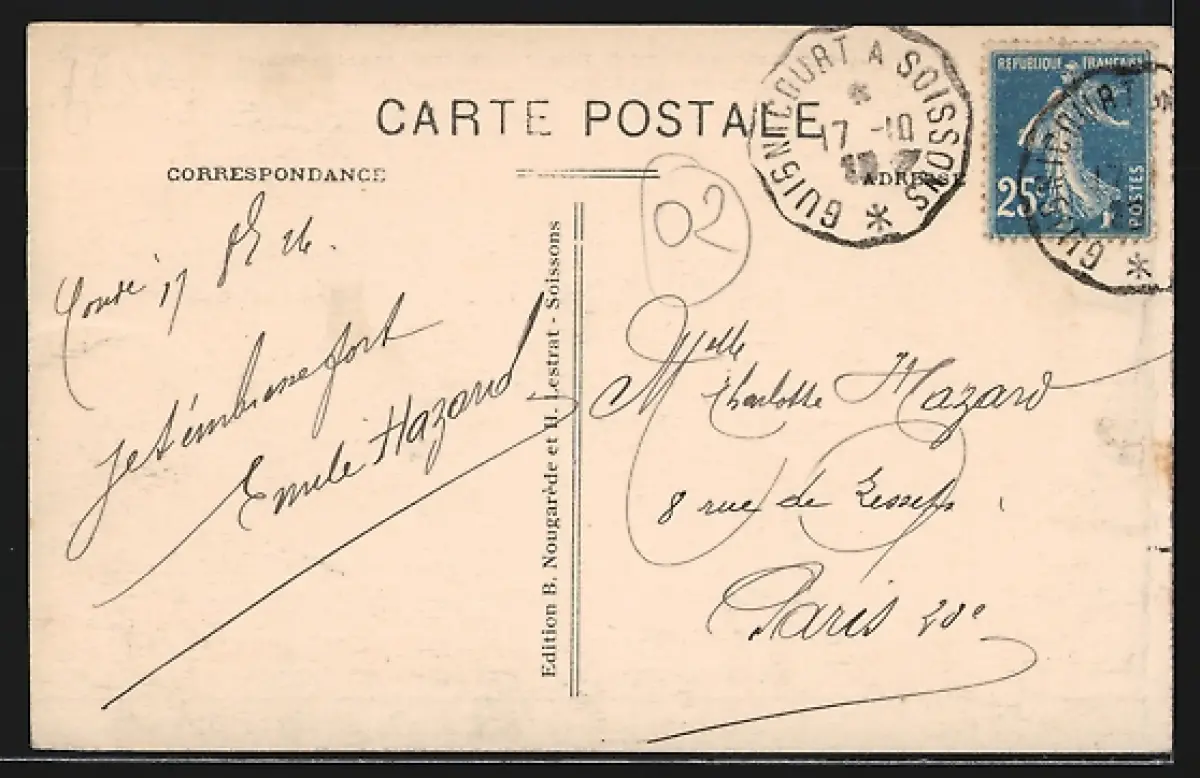 CARTE POSTALE
CORRESPONDANCE
ADRESSE
GUIGNICOURT A SOISSONS
17 -10
REPUBLIQUE FRANÇAISE
25c
POSTES
GUIGNICOURT
17
02
Condé 17 8bre 26.
Je t'embrasse fort
Emile Hazard
Edition B. Nougarède et H. Lestrat - Soissons
Melle Charlotte Hazard
8 rue de Lesseps
Paris 20e